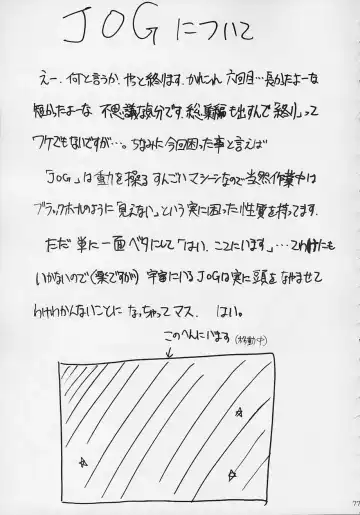 JOGについて
えー、何と言うか、やっと終ります。かれこれ六回目…長かったよーな
短かったよーな 不思議な気分です。総集編も出すんで「終り」って
ワケでもないですが…。ちなみに今回困った事と言えば
「JOG」は重力を操る すんごいマシーンなので当然作業中は
ブラックホールのように「見えない」という実に困った性質を持ってます。
ただ単に一面ベタにして「はい、ここにいます」…てわけにも
いかないので(楽ですが) 宇宙にいるJOGは実に頭をなやませて
わけわかんないことに なっちゃってマス. はい。
このへんにいます(移動中)
77